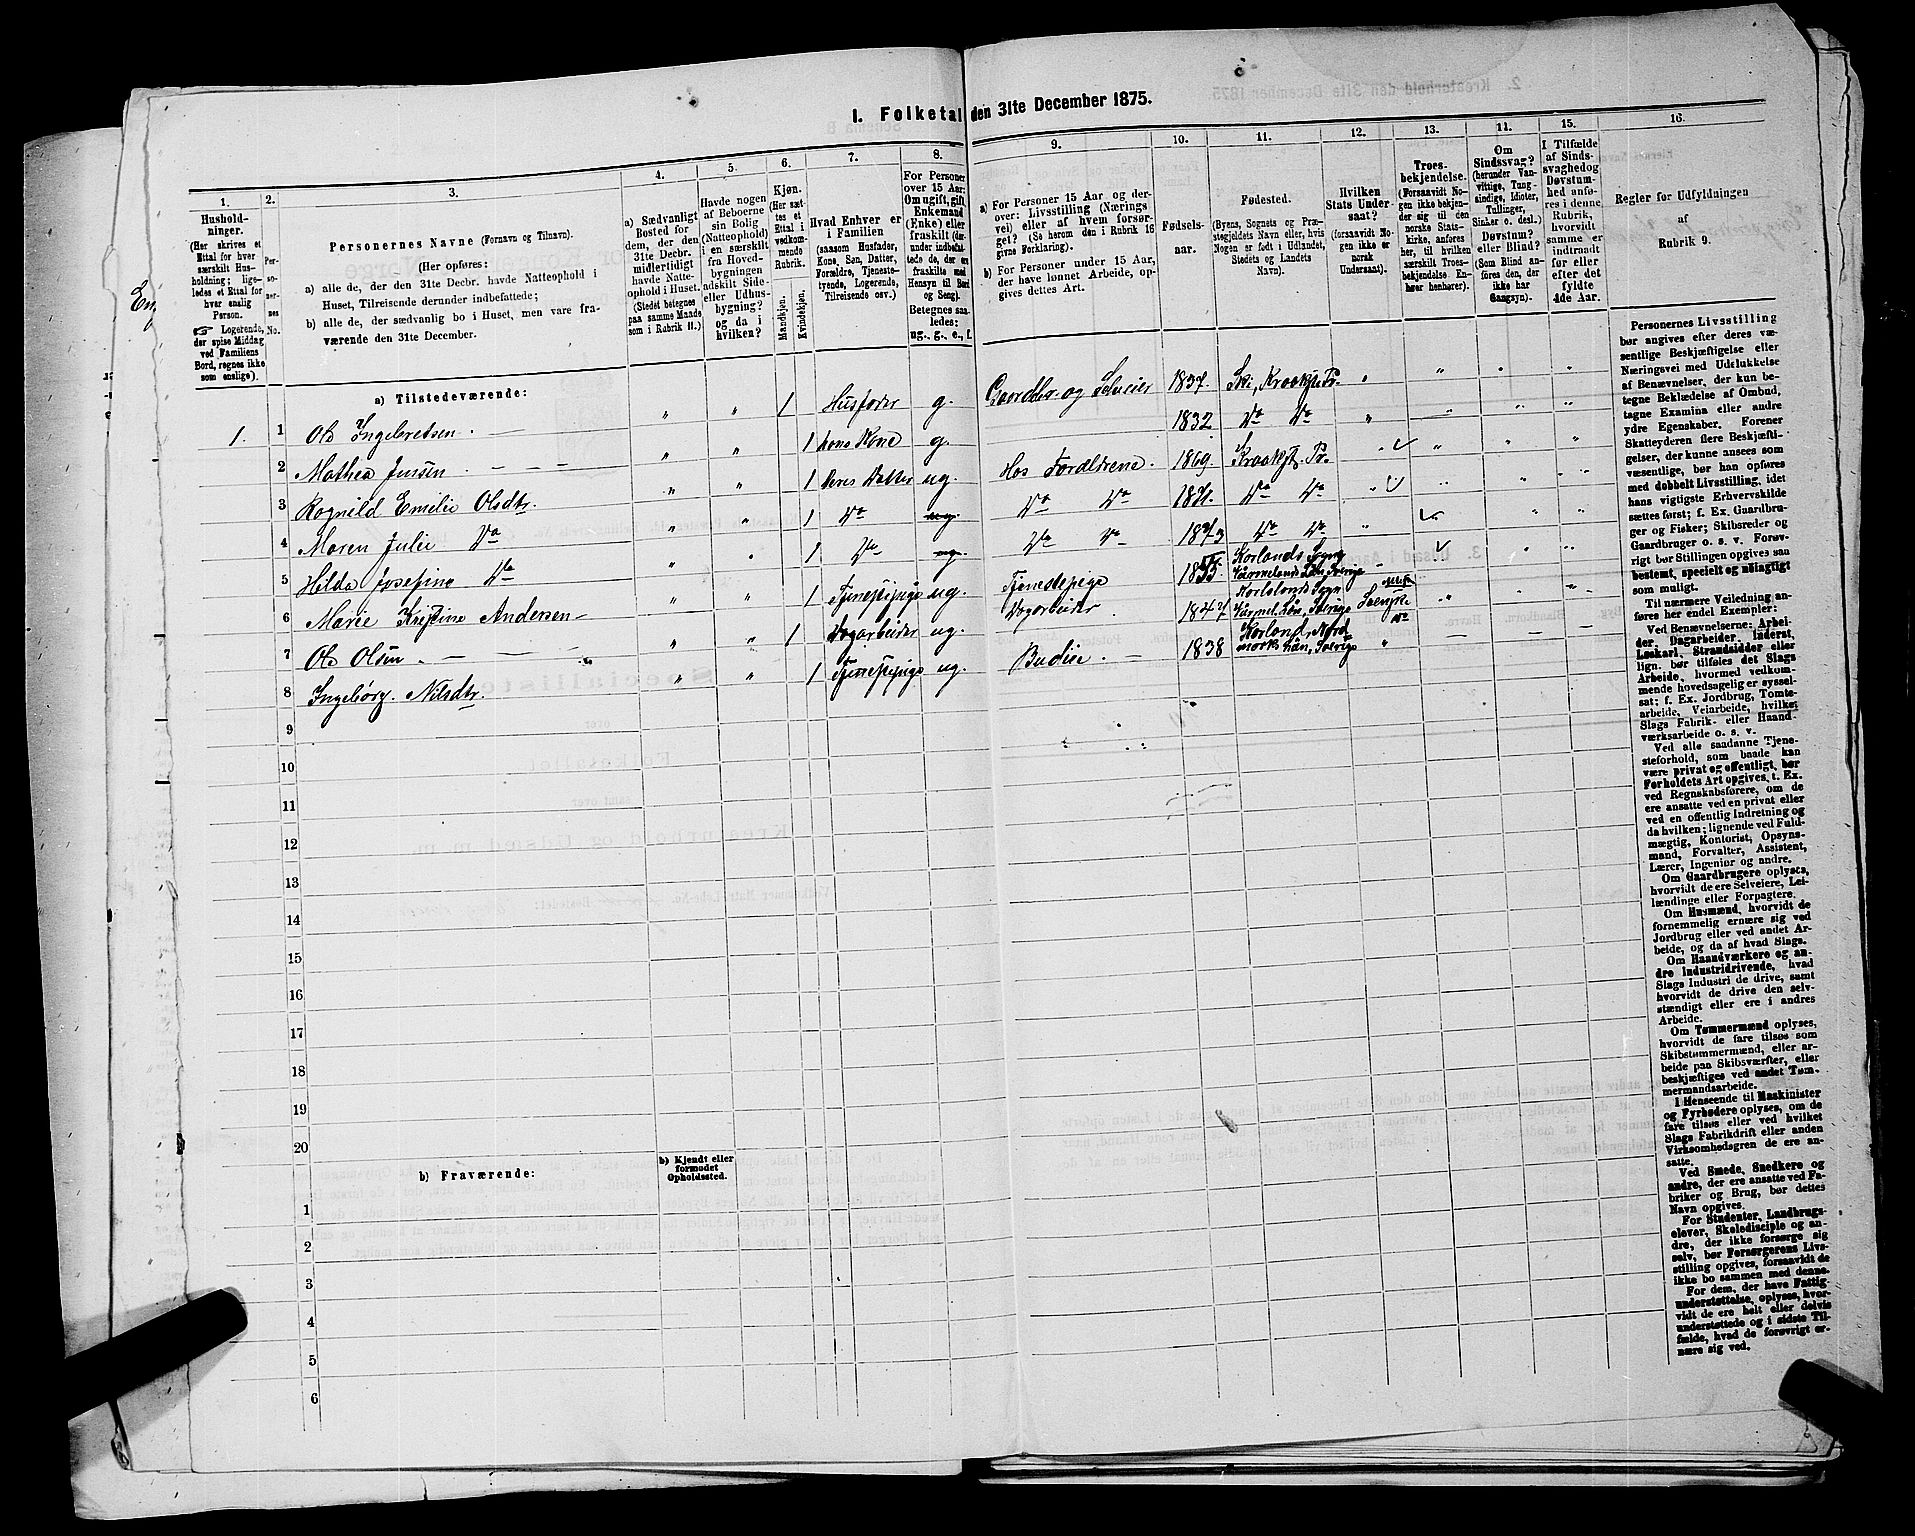 1. Folketal den 31te December 1875.
1. 2. 3. 4. 5. 6. 7. 8. 9. 10. 11. 12. 13. 11. 15. 16.
Husholdninger.
(Her skrives et
Ettal for hver
særskilt Husholdning;
ligeledes et Ettal for
hver enslig
Person.
☞ Logerende,
der spise Middag
ved Familiens
Bord, regnes ikke
som enslige).
Personernes No.
Personernes Navne (Fornavn og Tilnavn).
(Her opføres:
a) alle de, der den 31te Decbr. havde Natteophold i
Huset, Tilreisende derunder indbefattede;
b) alle de, der sædvanlig bo i Huset, men vare fraværende
den 31te December.
a) Sædvanligt
Bosted for
dem, der den
31te Decbr.
midlertidigt
havde Natteophold
i Huset.
(Stedet betegnes
paa samme Maade
som i Rubrik 11.)
Havde nogen
af Beboerne
sin Bolig
(Natteophold)
i en særskilt
fra Hovedbygningen
adskilt Side-
eller Udhusbygning?
og da i
hvilken?
Kjøn.
(Her sættes
et
Ettal i
vedkommende
Rubrik.
Mandkjøn.
Kvindekjøn.
Hvad Enhver er
i Familien
(saasom Husfader,
Kone, Søn, Datter,
Forældre, Tjenestetyende,
Logerende,
Tilreisende osv.)
For Personer
over 15 Aar:
Om ugift, gift,
Enkemand
(Enke) eller
fraskilt (derunder
indbefattede
de, der ere
fraskilte med
Hensyn til Bord
og Seng).
Betegnes saaledes:
ug., g., e., f.
a) For Personer 15 Aar og derover:
Livsstilling (Næringsvei)
eller af hvem forsørget?
(Se herom den i Rubrik 16
givne Forklaring).
b) For Personer under 15 Aar,
der have lønnet Arbeide, opgives
dettes Art.
Fødselsaar.
Fødested.
(Byens, Sognets og Præstegjeldets
Navn eller, hvis
Nogen er født i Udlandet,
Stedets og Landets
Navn).
Hvilken
Stats Undersaat?
(forsaavidt Nogen
ikke er
norsk
Undersaat).
Troesbekjendelse.
(Forsaavidt Nogen
ikke bekjender
sig til den
norske Statskirke,
anføres
her, til hvilken
særskilt Troesbekjendelse
Enhver
henhører).
Om
Sindssvag?
(herunder Vanvittige,
Tungsindige,
Idioter,
Tullinger,
Sinker o. desl.)
Døvstum?
eller Blind?
(Som Blind anføres
den, der
ikke har
Gangsyn).
I Tilfælde
af Sindssvaghed
og
Døvstumhed
anføres
i denne
Rubrik,
hvorvidt
samme er
indtraadt
før eller
efter det
fyldte
4de Aar.
Regler for Udfyldningen
af
Rubrik 9.
a) Tilstedeværende:
1. 1 Ole Ingebretsen " " 1 Husfader g. Gaardbr. og Selveier 1837. Ski, Kraakst. Pr. " " " "
2 Mathea Jensen " " 1 hans Kone g. 1832 Do Do
3 Ragnild Emilie Olsdtr. " " 1 deres Datter ug. Hos Forældrene. 1869. Kraakst. Pr.
4 Maren Julie Do " " 1 Do ug. Do Do 1871. Do Do
5 Hilda Josefine Do " " 1 Do ug. Do Do 1873 Do Do
6 Marie Kristine Andersen " " 1 Tjenestpige ug. Tjenestepige Korlands Sogn Värmelands Län, Sverige
7 Ole Olsen " " 1 Dagarbeider ug. Dagarbeider Svenske
8 Ingebörg Nilsdtr. " " 1 Tjenestpige ug. Budeie 1838
9
10
11
12
13
14
15
16
17
18
19
20
b) Fraværende:
b) Kjendt eller
formodet
Opholdssted.
1
2
3
4
5
6
Personernes Livsstilling
bør angives efter deres væsentlige
Beskjæftigelse eller
Næringsvei med Udelukkelse
af Benævnelser, der kun betegne
Beklædelse af Ombud,
tagne Examina eller andre
ydre Egenskaber. Forener
Skatteyderen flere Beskjæftigelser,
der kunne ansees som
væsentlige, bør han opføres
med dobbelt Livsstilling, idet
hans vigtigste Erhvervskilde
sættes først; f. Ex. Gaardbruger
og Fisker; Skibsreder og
Gaardbruger o. s. v. Forøvrigt
bør Stillingen opgives saa
bestemt, specielt og nöiagtigt
som muligt.
Til nærmere Veiledning anføres
her endel Exempler:
Ved Benævnelserne: Arbeider,
Dagarbeider, Inderst,
Løskarl, Strandsidder eller
lign. bør tilføies det Slags
Arbeide, hvormed vedkommende
hovedsagelig er sysselsat;
f. Ex. Jordbrug, Tomtearbeide,
Veiarbeide, hvilket
Slags Fabrik- eller Haandværksarbeide
o. s. v.
Ved alle saadanne Tjenesteforhold,
som baade kan
være privat og offentligt, bør
Forholdets Art opgives, t. Ex.
ved Regnskabsførere, om de
ere ansatte ved en privat eller
ved en offentlig Indretning og
da hvilken; lignende ved Fuldmægtig,
Kontorist, Opsynsmand,
Forvalter, Assistent,
Lærer, Ingeniør og andre.
Om Gaardbrugere oplyses,
hvorvidt de ere Selveiere, Leilændinge
eller Forpagtere.
Om Husmænd, hvorvidt de
fornemmelig ernære sig ved
Jordbrug eller ved andet Arbeide,
og da af hvad Slags.
Om Haandværkere og andre
Industridrivende, hvad
Slags Industri de drive, samt
hvorvidt de drive den selvstændigt
eller ere i andres
Arbeide.
Om Tømmermænd oplyses,
hvorvidt de fare tilsøs som
Skibstømmermænd, eller arbeide
paa Skibsværfter, eller
beskjæftiges ved andet Tømmermandsarbeide.
I Henseende til Maskinister
og Fyrbødere oplyses, om de
fare tilsøs eller ved hvilket
Slags Fabrikdrift eller anden
Virksomhedsgren de ere ansatte.
Ved Smede, Snedkere og
andre, der ere ansatte ved Fabriker
og Brug, bør dettes
Navn opgives.
For Studenter, Landbrugselever,
Skoledisciple og andre,
der ikke forsørge sig
selv, bør Forsørgerens Livsstilling
opgives, forsaavidt de
ikke bo sammen med denne.
For dem, der have Fattigunderstøttelse,
oplyses, hvorvidt
de ere helt eller delvis
understøttede og i sidste Tilfælde,
hvad de forøvrigt ernære
sig ved.